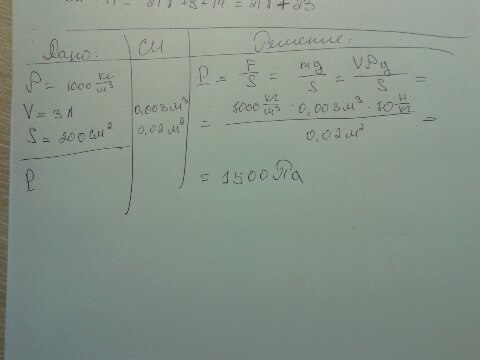 = 218 + 9 + 14 = 218 + 23
Дано: СИ Решение:
ρ = 1000 кг/м³
V = 3 л 0,003 м³
S = 200 см² 0,02 м²
P
P = F/S = mg/S = Vρg/S =
= 1000 кг/м³ · 0,003 м³ · 10 Н/кг / 0,02 м² =
= 1500 Па